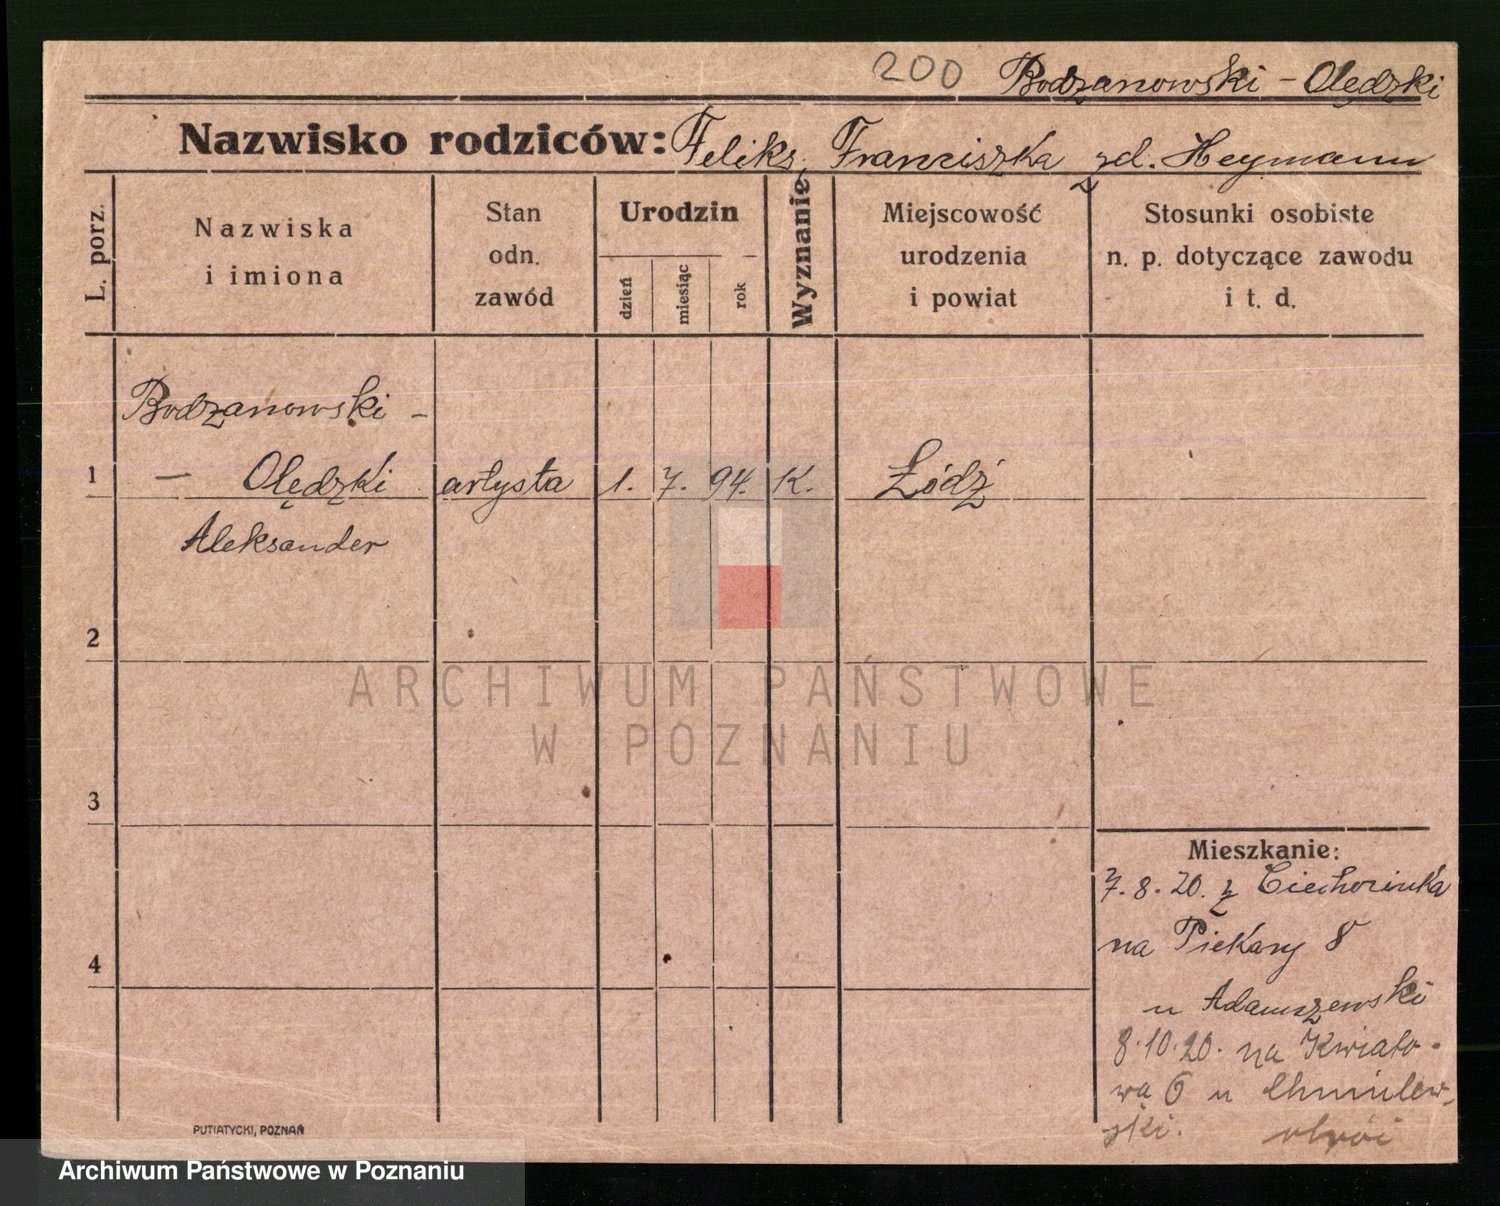 200 Bodzanowski - Olędzki
Nazwisko rodziców: Feliks, Franciszka zd. Heymann
L. porz.
Nazwiska
i imiona
Stan
odn.
zawód
Urodzin
dzień
miesiąc
rok
Wyznanie
Miejscowość
urodzenia
i powiat
Stosunki osobiste
n. p. dotyczące zawodu
i t. d.
Bodzanowski -
1 - Olędzki artysta 1. 7. 94. K. Łódź
Aleksander
2
ARCHIWUM PAŃSTWOWE
W POZNANIU
3
4
Mieszkanie:
7. 8. 20. z Ciechocinka
na Piekary 8
u Adamszewski
8. 10. 20. na Kwiato-
wą 6 u Chmilew-
ski.
PUTIATYCKI, POZNAŃ
Archiwum Państwowe w Poznaniu